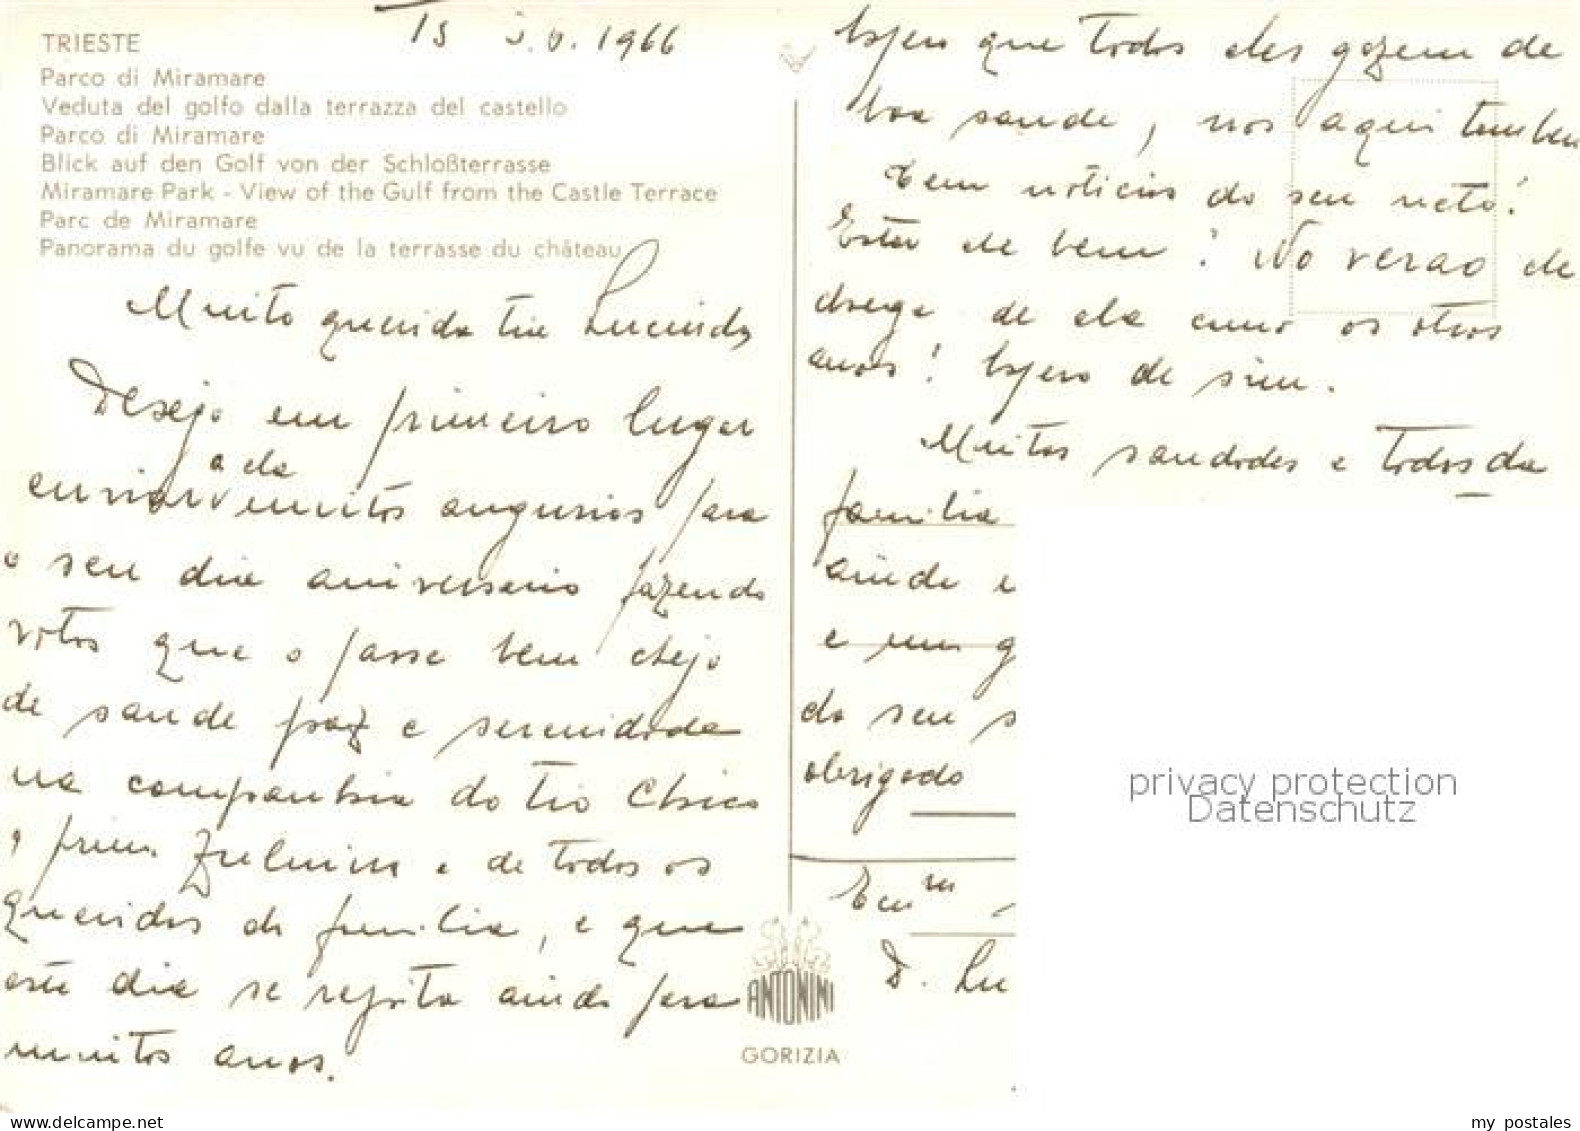 TRIESTE
Parco di Miramare
Veduta del golfo dalla terrazza del castello
Parco di Miramare
Blick auf den Golf von der Schloßterrasse
Miramare Park - View of the Gulf from the Castle Terrace
Parc de Miramare
Panorama du golfe vu de la terrasse du château
1966
Muito querida tia Lucinda
Desejo em primeiro lugar
a ela
enviar muitos augurios para
o seu dia aniversario fazendo
votos que o passe bem cheio
de saude paz e serenidade
na companhia do tio Chico
prima Zulmira e de todos os
queridos da familia, e que
este dia se repita ainda para
muitos anos.
Espero que todos eles gozem de
boa saude, nos aqui tambem
Tem noticias do seu neto?
Esta de bem? No verao
de ela como os otros
anos! Espero de sim.
Muitas saudades e todos da
familia
ainda e
e um g
do seu s
obrigado
Exmª
D. Lu
ANTONINI
GORIZIA
privacy protection
Datenschutz
my postales
www.delcampe.net